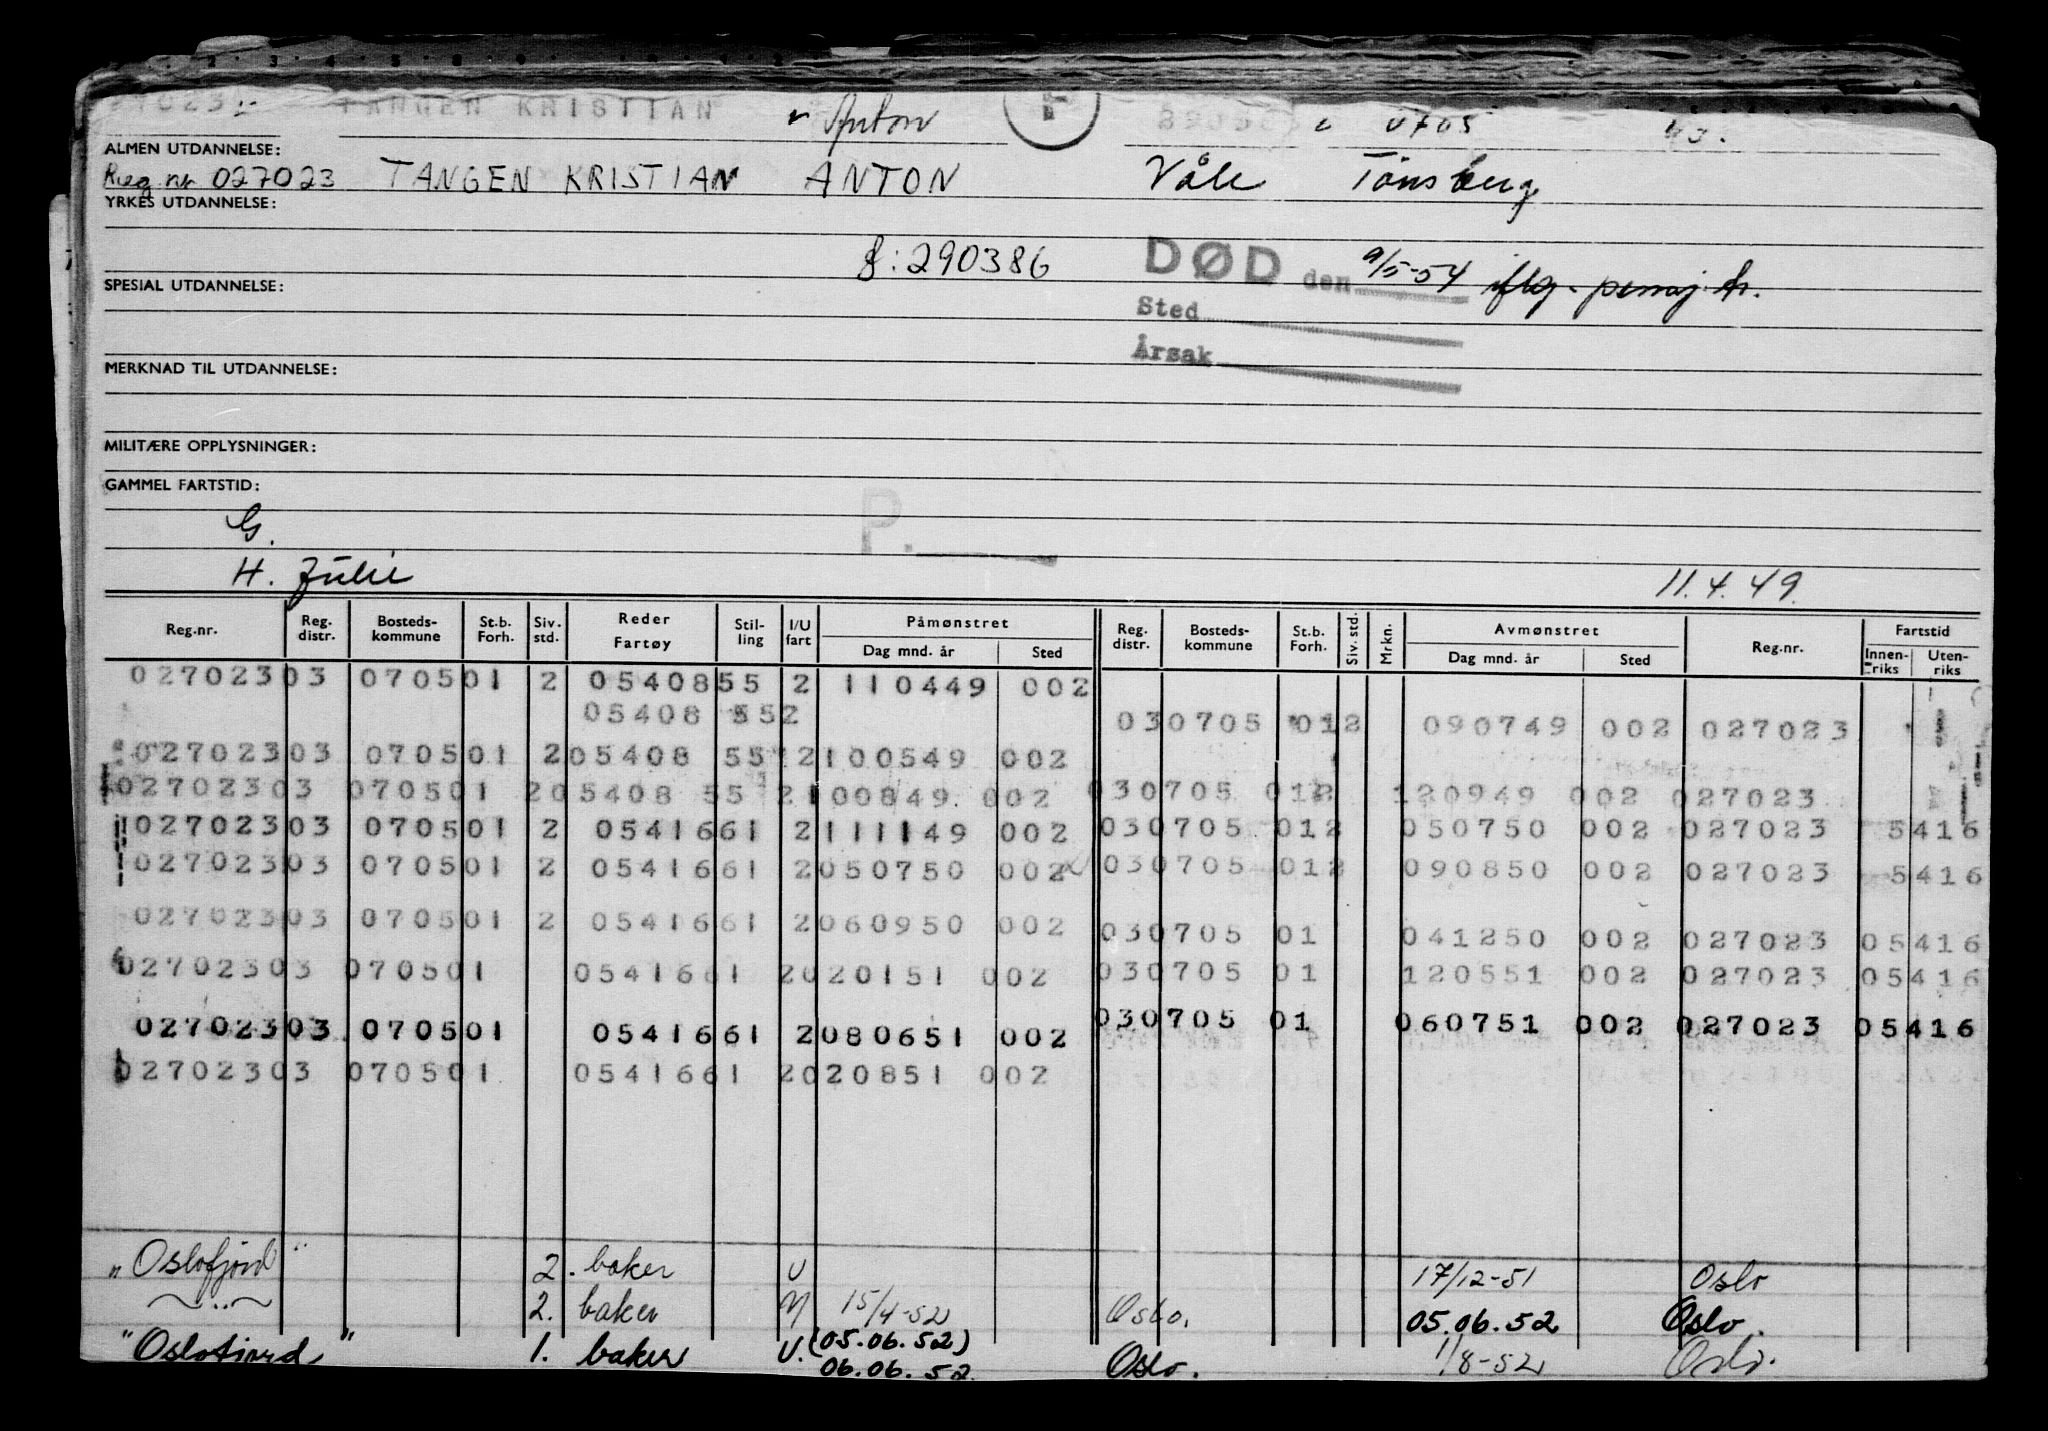 TANGEN KRISTIAN Anton 0705
ALMEN UTDANNELSE:
Reg nr 027023 TANGEN KRISTIAN ANTON Våle Tönsberg
YRKES UTDANNELSE:
f:290386 DØD den 9/5-54 iflg.
SPESIAL UTDANNELSE:
Sted
Årsak
MERKNAD TIL UTDANNELSE:
MILITÆRE OPPLYSNINGER:
GAMMEL FARTSTID:
P.
G.
H. Julie 11.4.49.
Reg.nr. Reg. distr. Bosteds-kommune St.b. Forh. Siv. std. Reder Fartøy Stil-ling I/U fart Påmønstret Dag mnd. år Sted Reg. distr. Bosteds-kommune St.b. Forh. Siv. std. Mrkn. Avmønstret Dag mnd. år Sted Reg.nr. Fartstid Innen-riks Uten-riks
02702303 070501 2 0540855 2 110449 002
05408 552 030705 012 090749 002 027023
02702303 070501 205408 55 2100549 002
02702303 070501 205408 55 2100849 002 030705 012 120949 002 027023
02702303 070501 2 0541661 2111149 002 030705 012 050750 002 027023 5416
02702303 070501 2 0541661 2050750 002 030705 012 090850 002 027023 5416
02702303 070501 2 0541661 2060950 002 030705 01 041250 002 027023 05416
02702303 070501 0541661 2020151 002 030705 01 120551 002 027023 05416
02702303 070501 0541661 2080651 002 030705 01 060751 002 027023 05416
02702303 070501 0541661 2020851 002
"Oslofjord" 2. baker U 17/12-51 Oslo
2. baker U 15/4-52 Oslo. 05.06.52 Oslo.
"Oslofjord" 1. baker U. (05.06.52) 06.06.52 Oslo. 1/8-52 Oslo.